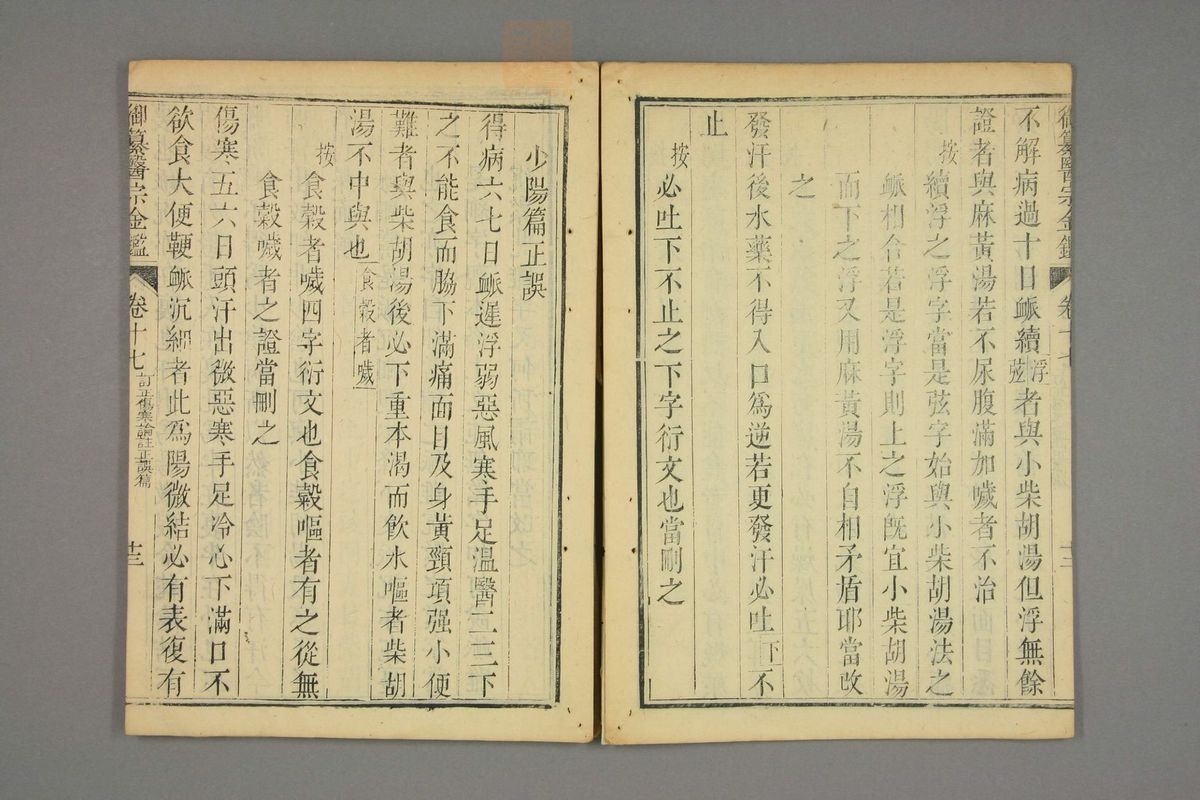 御纂醫宗金鑑 卷十七 十三
不解病過十日䘑續浮弦者與小柴胡湯但浮無餘
證者與麻黃湯若不尿腹滿加噦者不治
按續浮之浮字當是弦字始與小柴胡湯法之
䘑相合若是浮字則上之浮旣宜小柴胡湯
而下之浮又用麻黃湯不自相矛盾耶當改
之
發汗後水藥不得入口爲逆若更發汗必吐下不
止
按必吐下不止之下字衍文也當刪之
少陽篇正誤
得病六七日䘑遲浮弱惡風寒手足溫醫二三下
之不能食而脇下滿痛面目及身黃頸項强小便
難者與柴胡湯後必下重本渴而飲水嘔者柴胡
湯不中與也食穀者噦
按食穀者噦四字衍文也食穀嘔者有之從無
食穀噦者之證當刪之
傷寒五六日頭汗出微惡寒手足冷心下滿口不
欲食大便鞕䘑沉細者此爲陽微結必有表復有
御纂醫宗金鑑 卷十七 訂正傷寒論註正誤篇 十三